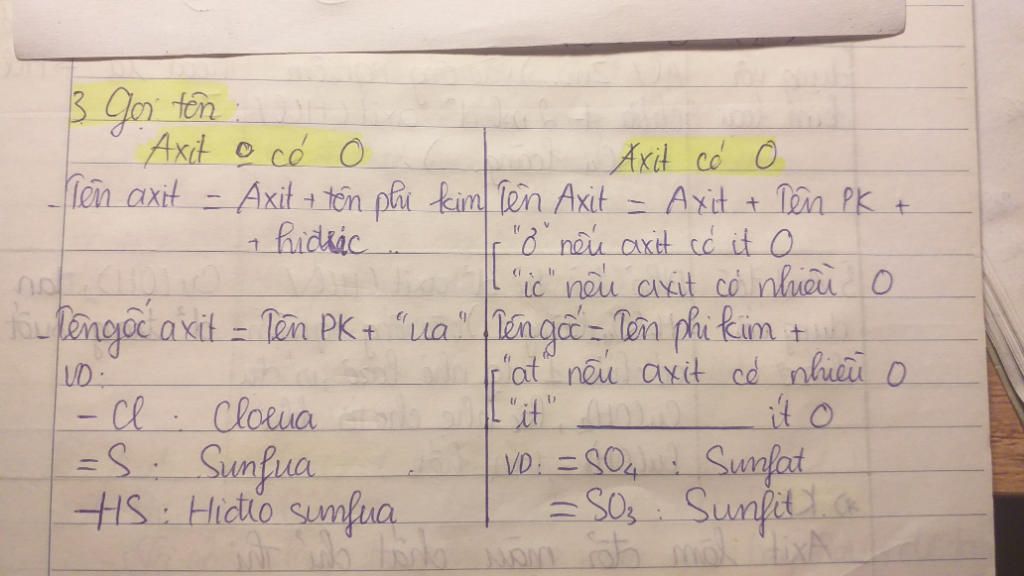 3 Gọi tên:
Axit o có O
- Tên axit = Axit + tên phi kim
+ hiđric ..
- Tên gốc axit = Tên PK + "ua"
VD:
- Cl : Clorua
= S : Sunfua
- HS : Hiđro sunfua
Axit có O
Tên Axit = Axit + Tên PK +
"ơ" nếu axit có ít O
"ic" nếu axit có nhiều O
Tên gốc = Tên phi kim +
"at" nếu axit có nhiều O
"it" ________ ít O
VD: = SO₄ : Sunfat
= SO₃ : Sunfit